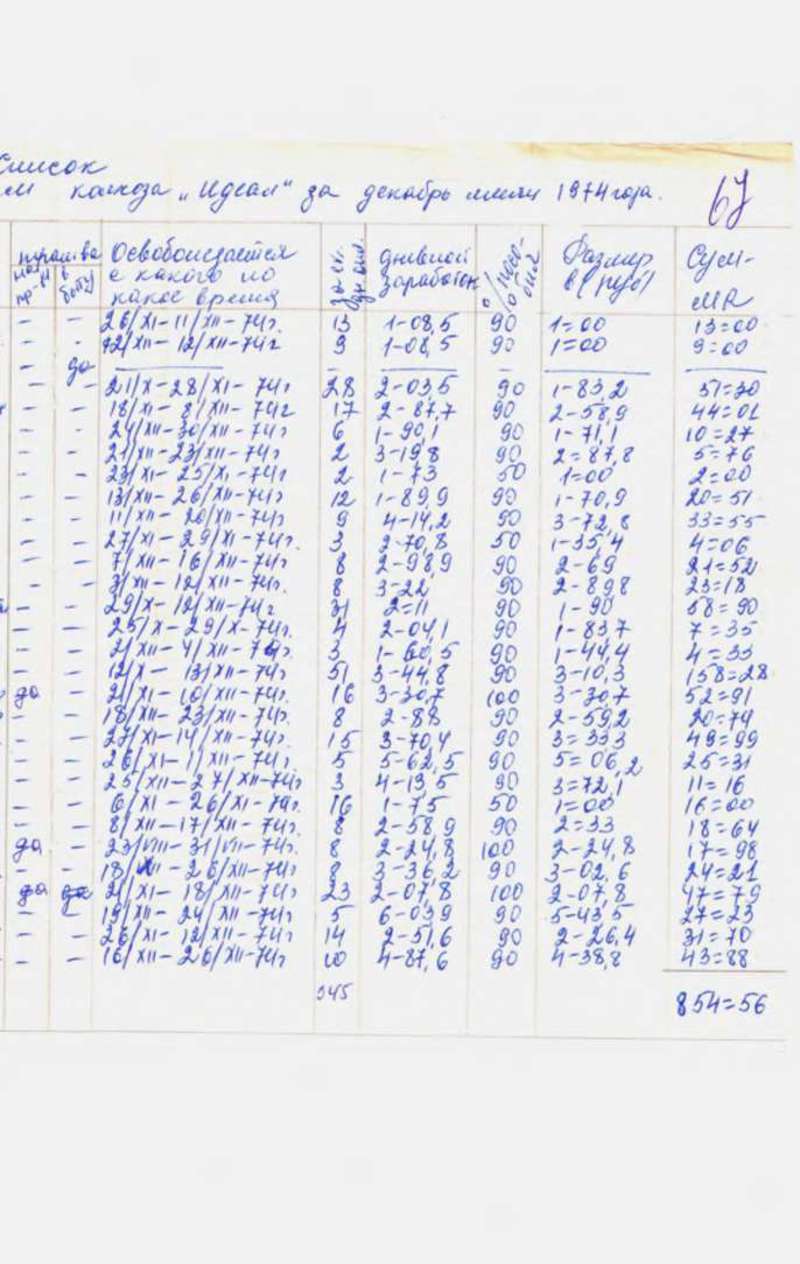 Список
колхоза „Идеал" за декабрь м-ц 1974 года. 67
травма Освобождается за ск. дневной % посо- Размер Сум-
на в с какого по дн. опл. заработок бия в (руб) ма
пр-ве быту какое время
- - 26/XI-11/XII-74г. 13 1-08,5 90 1=00 13=00
- - 12/XII-12/XII-74г 9 1-08,5 90 1=00 9=00
- да
- - 21/X-28/XI-74г 28 2-03,5 90 1-83,2 51=30
- - 18/XI-8/XII-74г 17 2-87,7 90 2-58,9 44=01
- - 24/XII-30/XII-74г 6 1-90,1 90 1-71,1 10=27
- - 21/XII-23/XII-74г 2 3-19,8 90 2=87,8 5=76
- - 23/XI-25/XI-74г 2 1-73 50 1=00 2=00
- - 13/XII-26/XII-74г 12 1-89,9 90 1-70,9 20=51
- - 11/XII-20/XII-74г 9 4-14,2 90 3-72,8 33=55
- - 27/XI-29/XI-74г. 3 2-70,8 50 1-35,4 4=06
- - 7/XII-16/XII-74г 8 2-98,9 90 2-69 21=52
- - 3/XII-12/XII-74г. 8 3-22 90 2-89,8 23=18
- - 29/X-12/XII-74г 31 2=11 90 1-90 58=90
- - 25/X-29/X-74г. 4 2-04,1 90 1-83,7 7=35
- - 2/XII-4/XII-74г. 3 1-60,5 90 1-44,4 4=33
- - 12/X-13/XII-74г 51 3-44,8 90 3-10,3 158=28
да - 21/XI-10/XII-74г 16 3-30,7 100 3-30,7 52=91
- - 18/XII-23/XII-74г. 8 2-88 90 2-59,2 20=74
- - 27/XI-14/XII-74г. 15 3-70,4 90 3=33,3 49=99
- - 26/XI-1/XII-74г. 5 5-62,5 90 5=06,2 25=31
- - 25/XII-27/XII-74г 3 4-13,5 90 3=72,1 11=16
- - 6/XI-26/XI-74г. 16 1-75 50 1=00 16=00
- - 8/XII-17/XII-74г. 8 2-58,9 90 2=33 18=64
да - 23/VIII-31/VIII-74г. 8 2-24,8 100 2-24,8 17=98
- - 18/XII-26/XII-74г 8 3-36,2 90 3-02,6 24=21
да да 21/XI-18/XII-74г 23 2-07,8 100 2-07,8 47=79
- - 19/XII-24/XII-74г 5 6-03,9 90 5-43,5 27=23
- - 26/XI-12/XII-74г 14 2-51,6 90 2-26,4 31=70
- - 16/XII-26/XII-74г 10 4-87,6 90 4-38,8 43=88
345 854=56